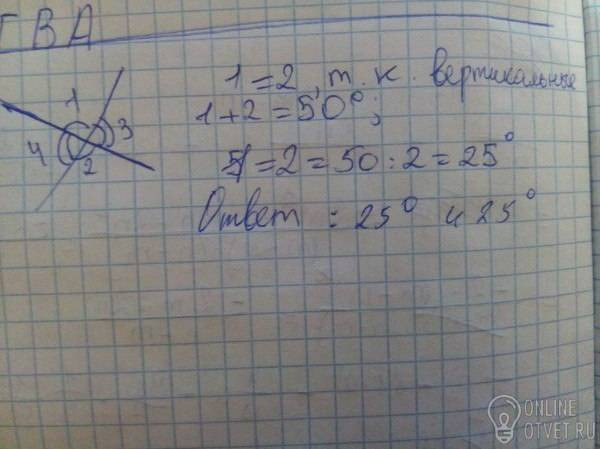 ГВА
1 = 2, т. к. вертикальные
1 + 2 = 50°;
1 = 2 = 50 : 2 = 25°
Ответ : 25° и 25°
1
3
4
2
ONLINE
OTVET.RU